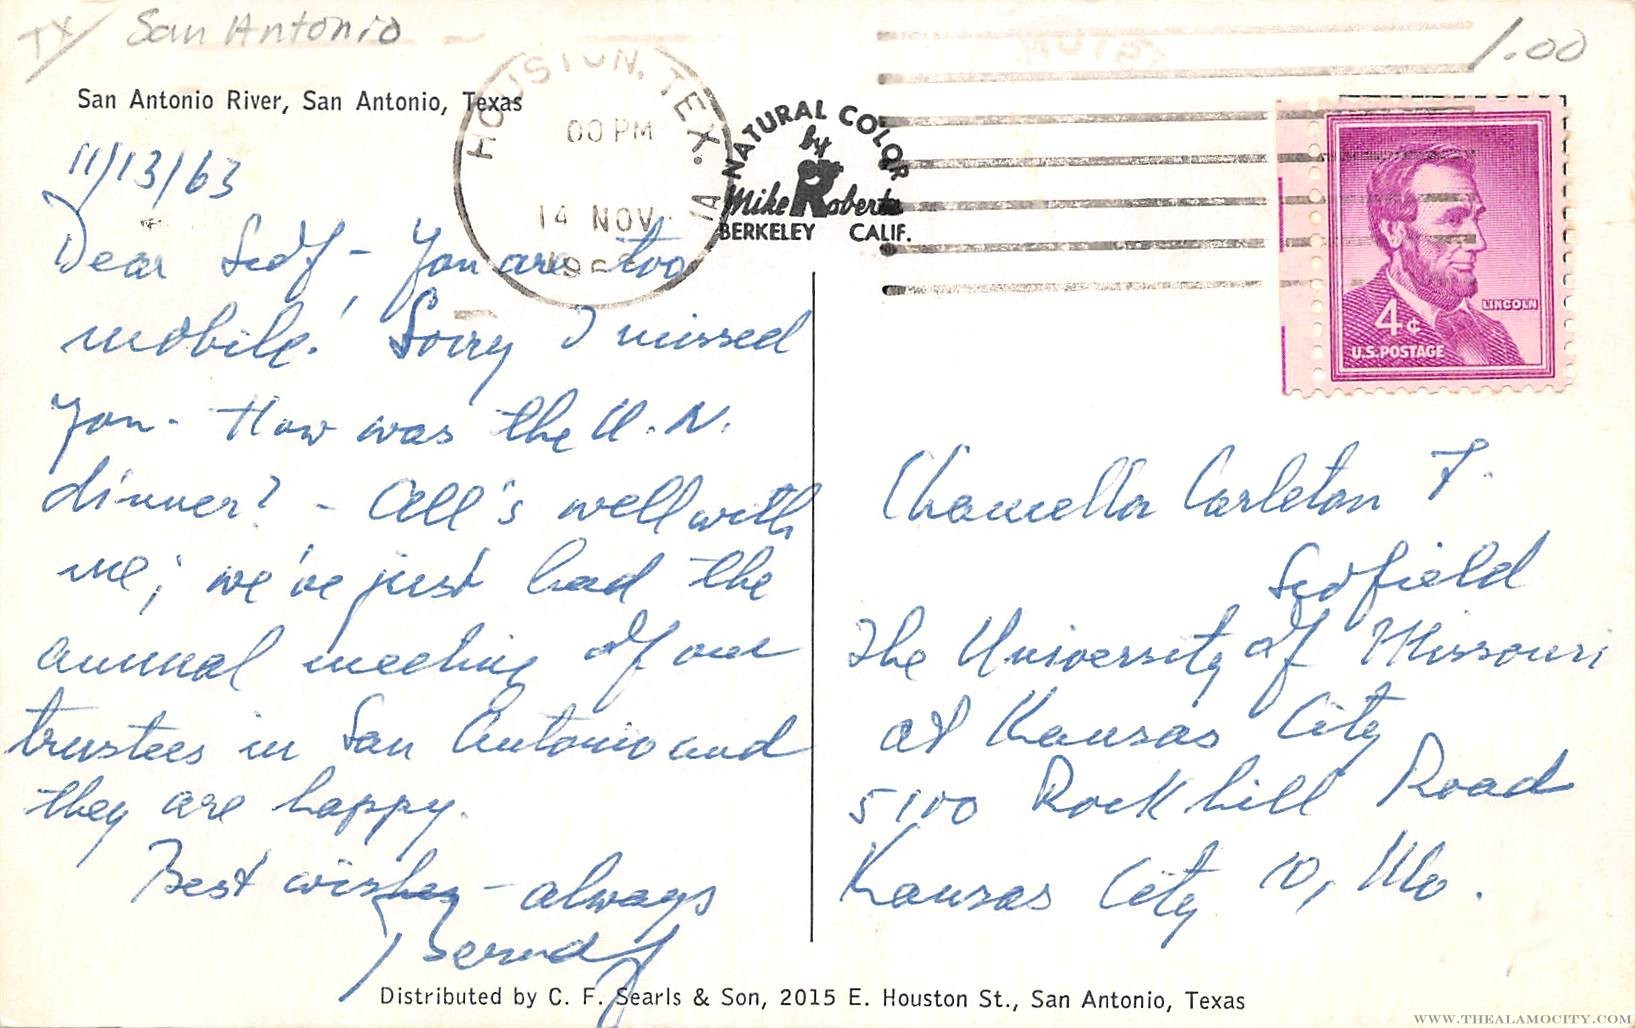 TX/ San Antonio
1.00
San Antonio River, San Antonio, Texas
HOUSTON, TEX.
00 PM
14 NOV
1A
NATURAL COLOR
by
Mike Roberts
BERKELEY CALIF.
LINCOLN
4¢
U.S. POSTAGE
11/13/63
Dear - You are too
mobile! Sorry I missed
you. How was the U.N.
dinner? - All's well with
me; we've just had the
annual meeting of our
trustees in San Antonio and
they are happy.
Best wishes - always
Chancellor Carleton F.
Scofield
The University of Missouri
at Kansas City
5100 Rockhill Road
Kansas City 10, Mo.
Distributed by C. F. Searls & Son, 2015 E. Houston St., San Antonio, Texas
WWW.THEALAMOCITY.COM